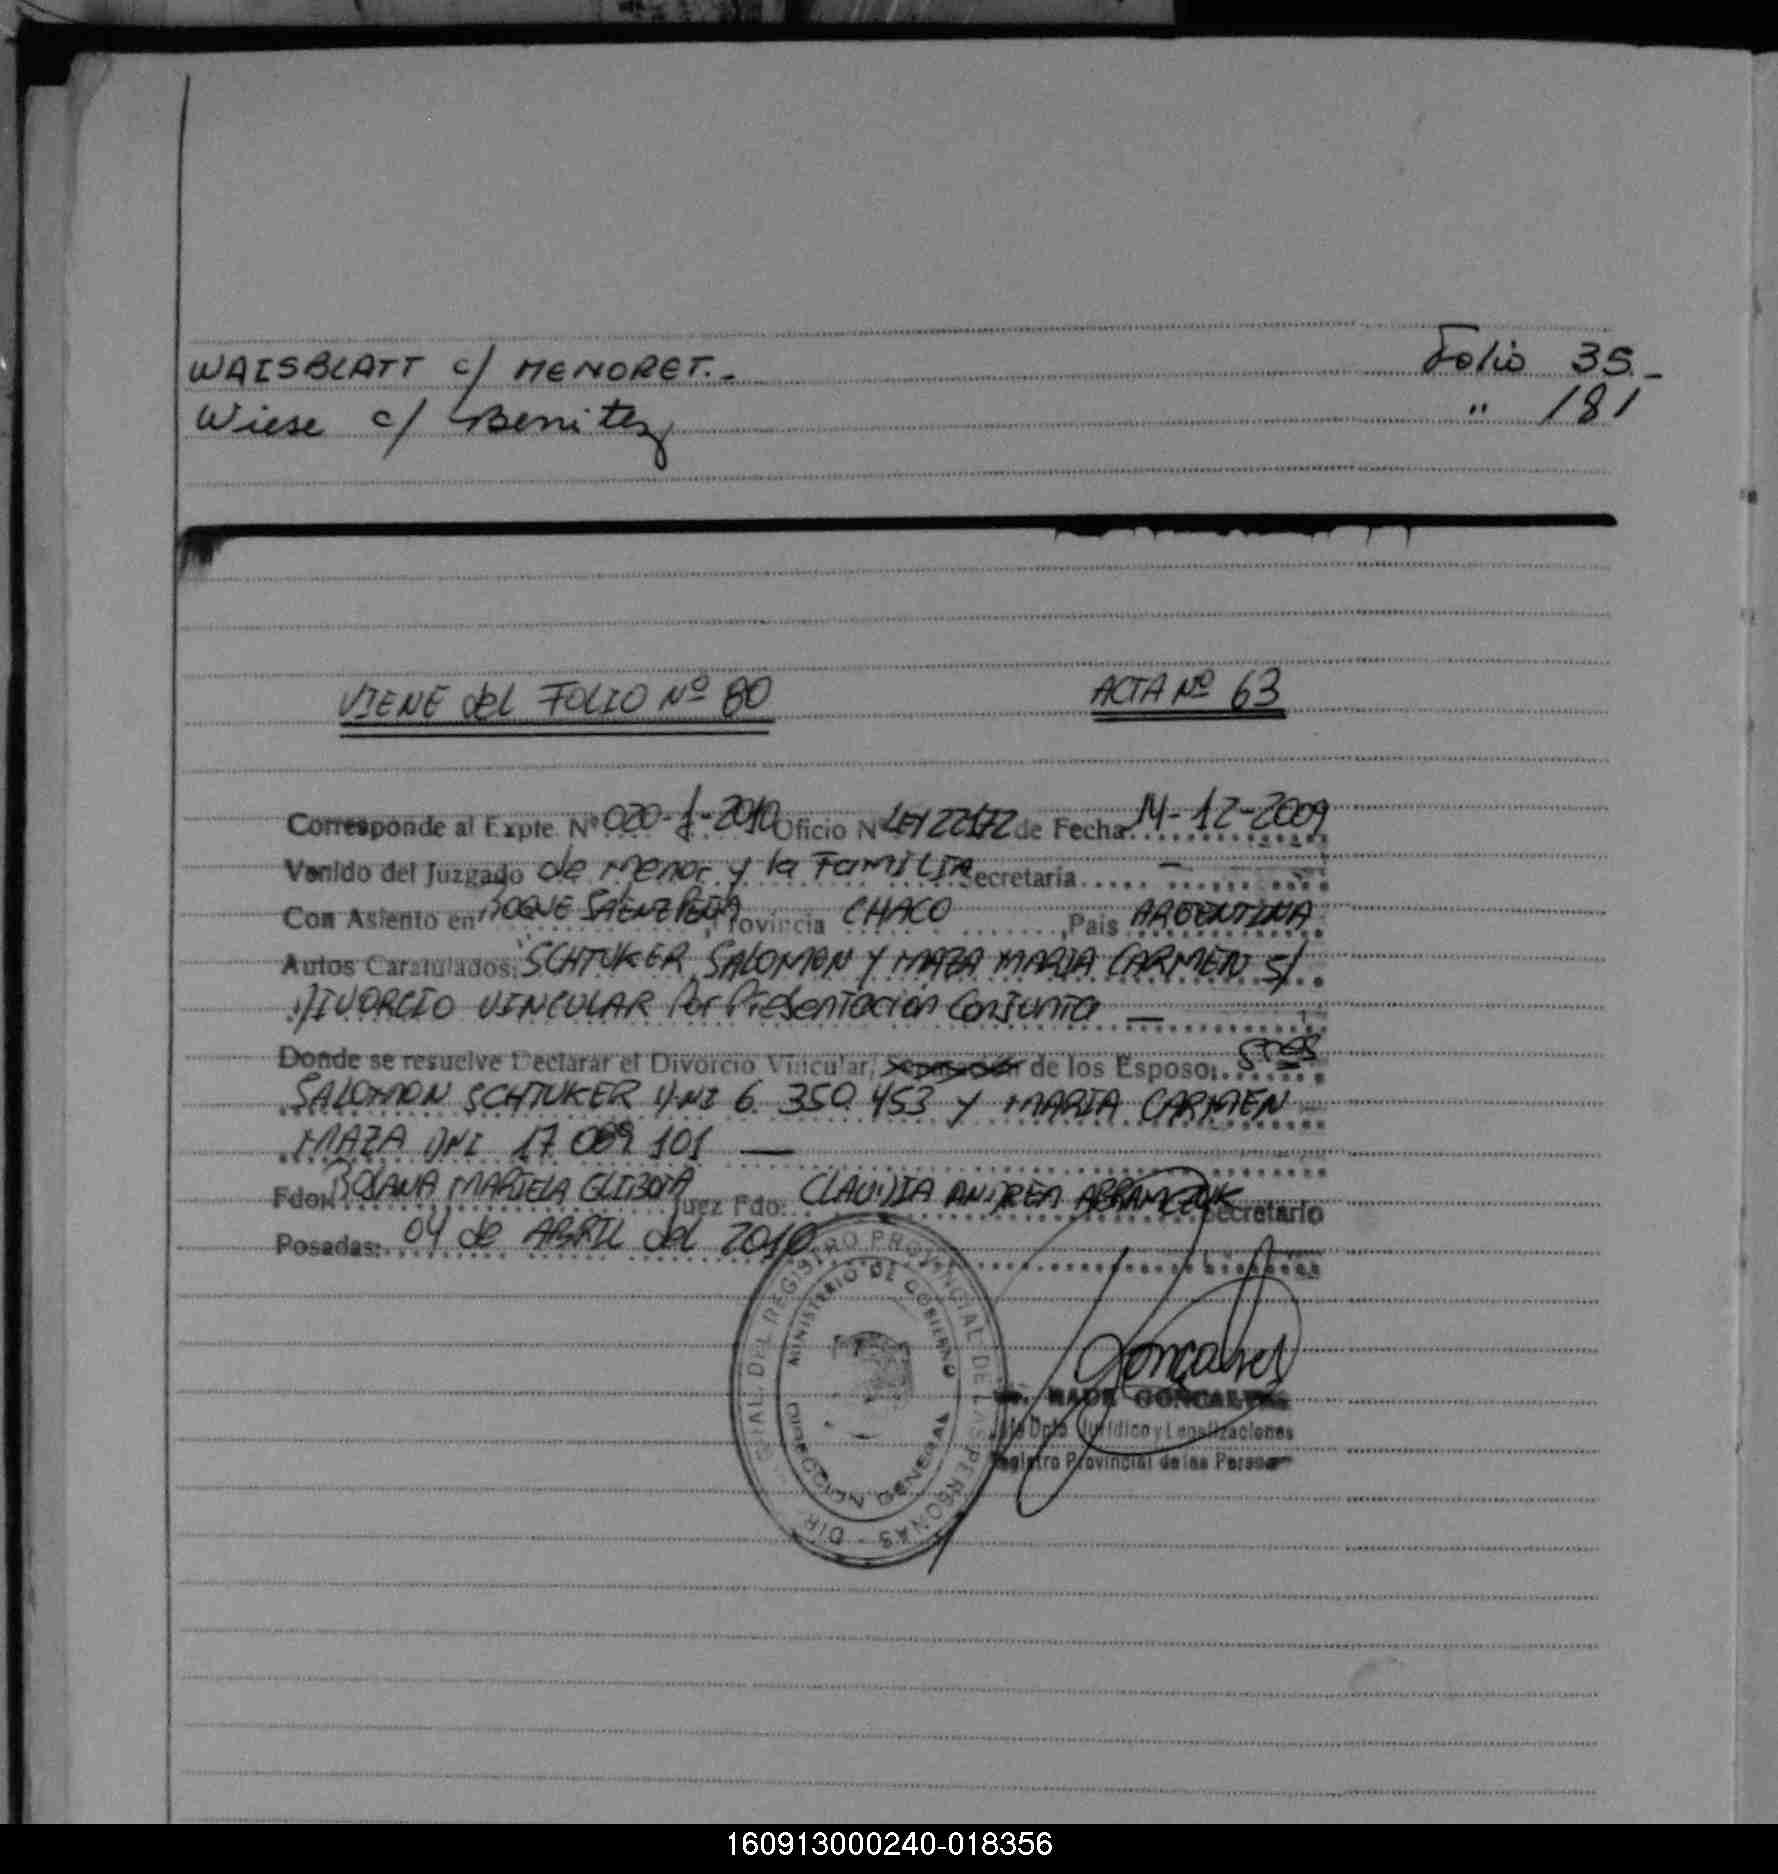 WAISBLATT c/ MENORET.- Folio 35.-
Wiese c/ Benitez " 181
VIENE del FOLIO Nº 80 ACTA Nº 63
Corresponde al Expte. Nº 020-1-2010 Oficio Nº LEY 22172 de Fecha 14-12-2009
Venido del Juzgado de Menor y la FamiLIA Secretaria..... —
Con Asiento en ROQUE SAENZ PEÑA, Provincia CHACO, Pais ARGENTINA
Autos Caratulados: SCHTUKER SALOMON Y MAZA MARIA CARMEN S/
DIVORCIO VINCULAR Por Presentacion Conjunta —
Donde se resuelve Declarar el Divorcio Vincular, Separación de los Esposo: sres
SALOMON SCHTUKER DNI 6.350.453 Y MARIA CARMEN
MAZA DNI 17 089 101 —
Fdo: ROSANA MARIELA GLIBOTA Juez Fdo: CLAUDIA ANDREA ABRAMCZUK Secretario
Posadas: 04 de ABRIL del 2010
DIR. GRAL. DEL REGISTRO PROVINCIAL DE LAS PERSONAS
MINISTERIO DE GOBIERNO
DIRECCION GENERAL
Goncalves
RAUL GONCALVES
Jefe Dpto. Jurídico y Legalizaciones
Registro Provincial de las Personas
160913000240-018356